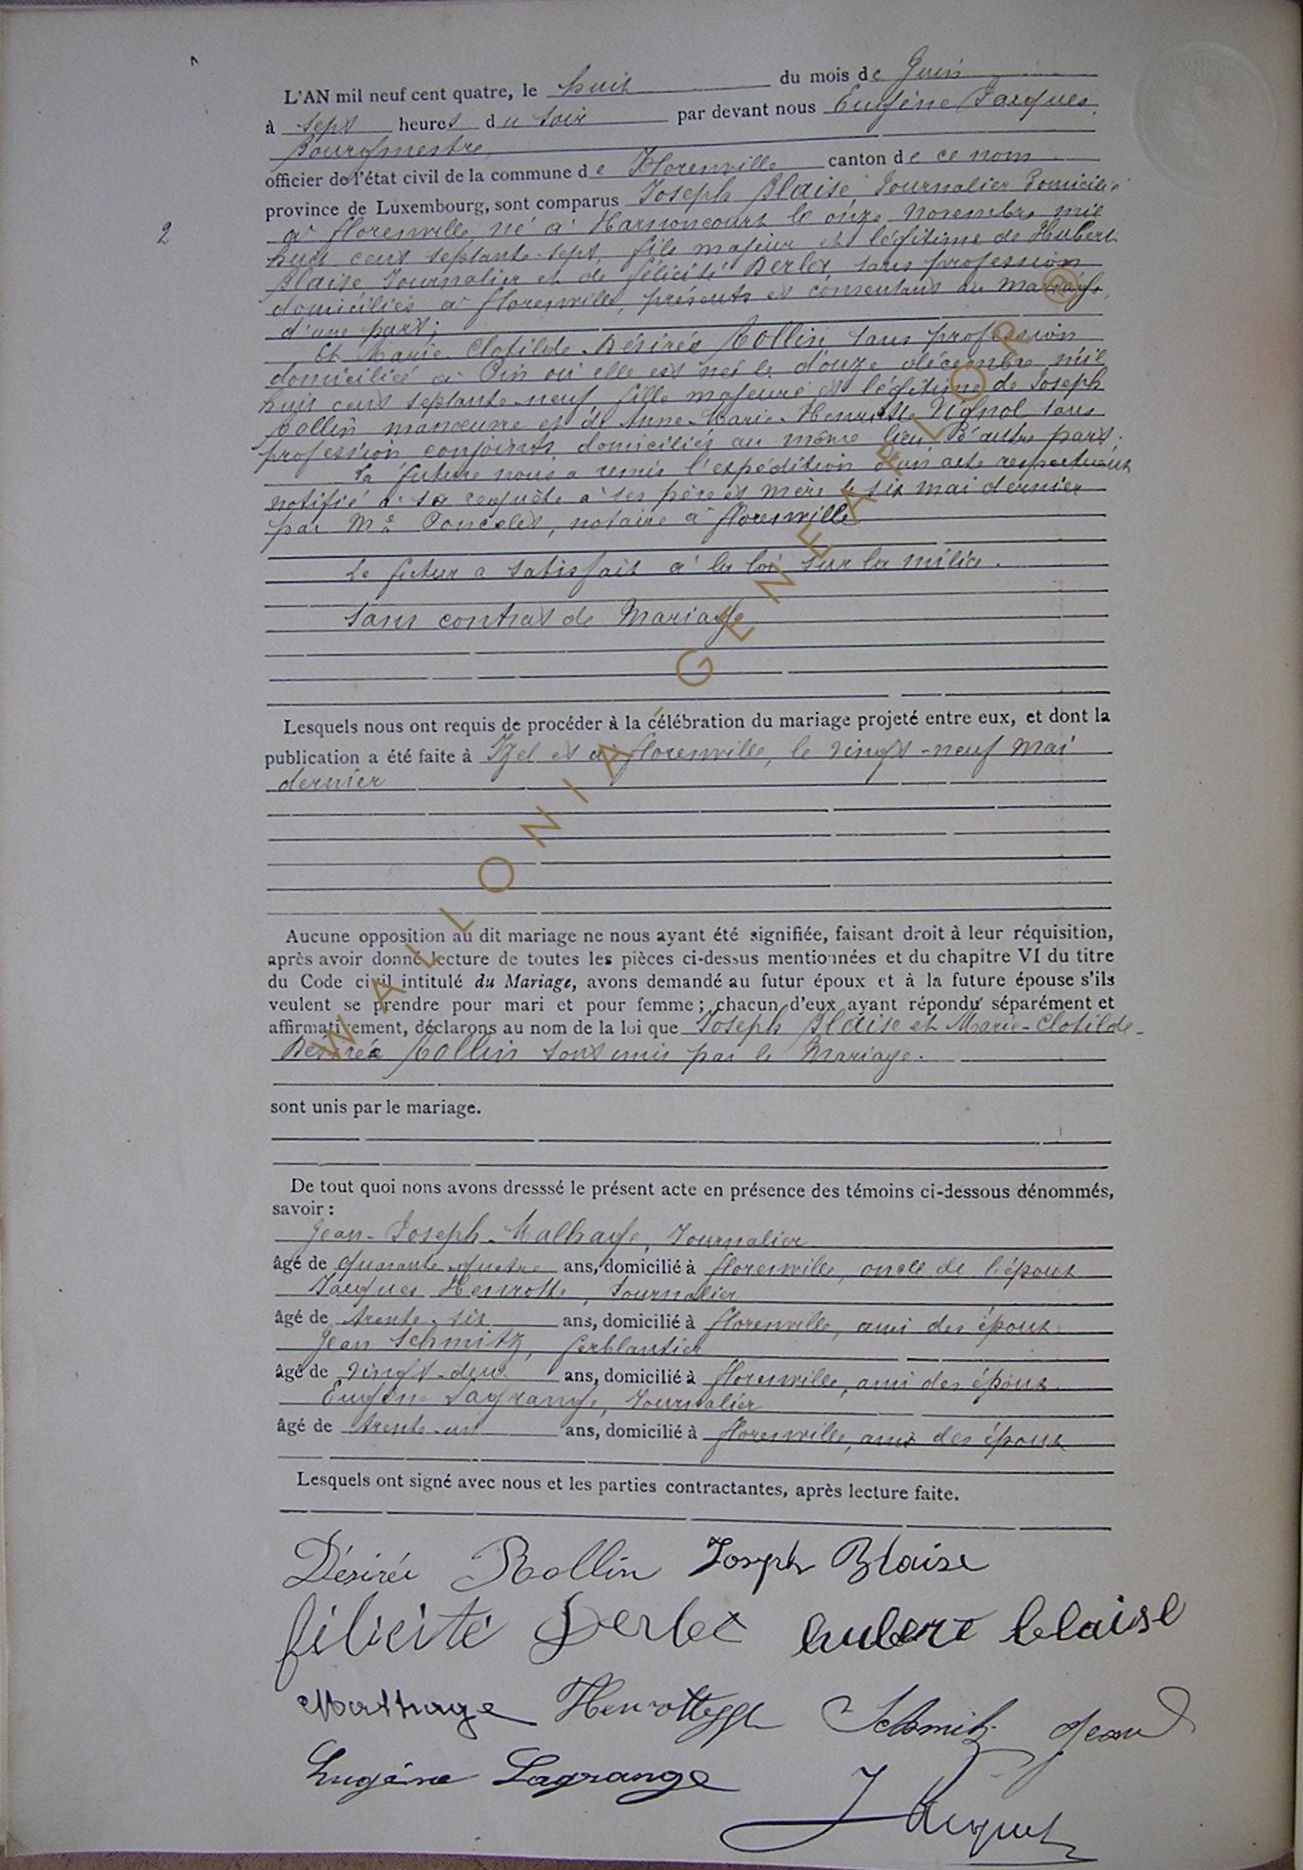 L'AN mil neuf cent quatre, le huit du mois de Juin
à sept heures du soir par devant nous Eugène Jacques,
Bourgmestre,
officier de l'état civil de la commune de Florenville canton de ce nom
province de Luxembourg, sont comparus Joseph Blaise, Journalier domicilié
2
à florenville né à Harnoncourt le onze Novembre mil
huit cent septante-sept, fils majeur et légitime de Hubert
Blaise Journalier et de félicité Derlet, sans profession
domiciliés à florenville, présents et consentant au mariage,
d'une part;
Et Marie-Clotilde-Désirée Rollin sans profession
domiciliée à Pin où elle est née le douze décembre mil
huit cent septante-neuf fille majeure et légitime de Joseph
Rollin manœuvre et de Anne-Marie-Henriette Vignol sans
profession conjoints domiciliés au même lieu D'autre part.
La future nous a remis l'expédition d'un acte respectueux
notifié à sa requête à ses père et mère le six mai dernier
par Me Poncelet, notaire à florenville
Le futur a satisfait à la loi sur la milice.
Sans contrat de Mariage
Lesquels nous ont requis de procéder à la célébration du mariage projeté entre eux, et dont la
publication a été faite à Izel et à florenville, le vingt-neuf Mai
dernier
Aucune opposition au dit mariage ne nous ayant été signifiée, faisant droit à leur réquisition,
après avoir donné lecture de toutes les pièces ci-dessus mentionnées et du chapitre VI du titre
du Code civil intitulé du Mariage, avons demandé au futur époux et à la future épouse s'ils
veulent se prendre pour mari et pour femme; chacun d'eux ayant répondu séparément et
affirmativement, déclarons au nom de la loi que Joseph Blaise et Marie-Clotilde-
Désirée Rollin sont unis par le Mariage.
sont unis par le mariage.
De tout quoi nons avons dresssé le présent acte en présence des témoins ci-dessous dénommés,
savoir :
Jean-Joseph-Mathaye, Journalier
âgé de quarante-quatre ans, domicilié à florenville, oncle de l'époux
Jacques Henrotte, Journalier
âgé de trente-six ans, domicilié à florenville, ami des époux
Jean Schmitz, ferblantier
âgé de vingt-deux ans, domicilié à florenville, ami des époux
Eugène Lagrange, Journalier
âgé de trente-un ans, domicilié à florenville, ami des époux
Lesquels ont signé avec nous et les parties contractantes, après lecture faite.
Désirée Rollin Joseph Blaise
félicité Derlet hubert blaise
Mathaye Henrotte Schmitz Jean
Eugène Lagrange
WALLONIA GENEAFLOR ®